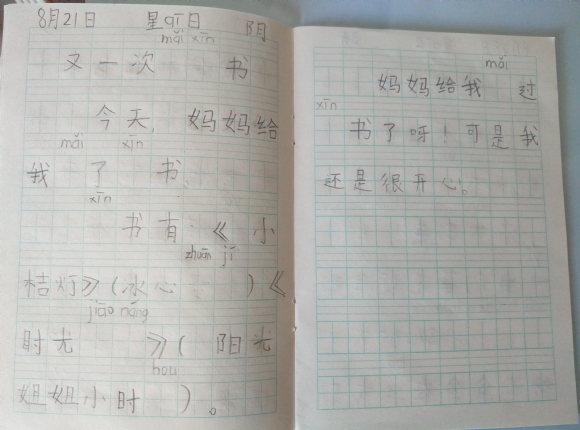 8月21日 星qī日 阴
mǎi xīn
又一次 书
今天,妈妈给
mǎi xīn
我 了 书.
xīn
书有《小
zhuān jí
桔灯》(冰心 )《
jiāo náng
时光 》( 阳光
hou
姐姐小时 )。
mǎi
妈妈给我 过
xīn
书了呀!可是我
还是很开心。